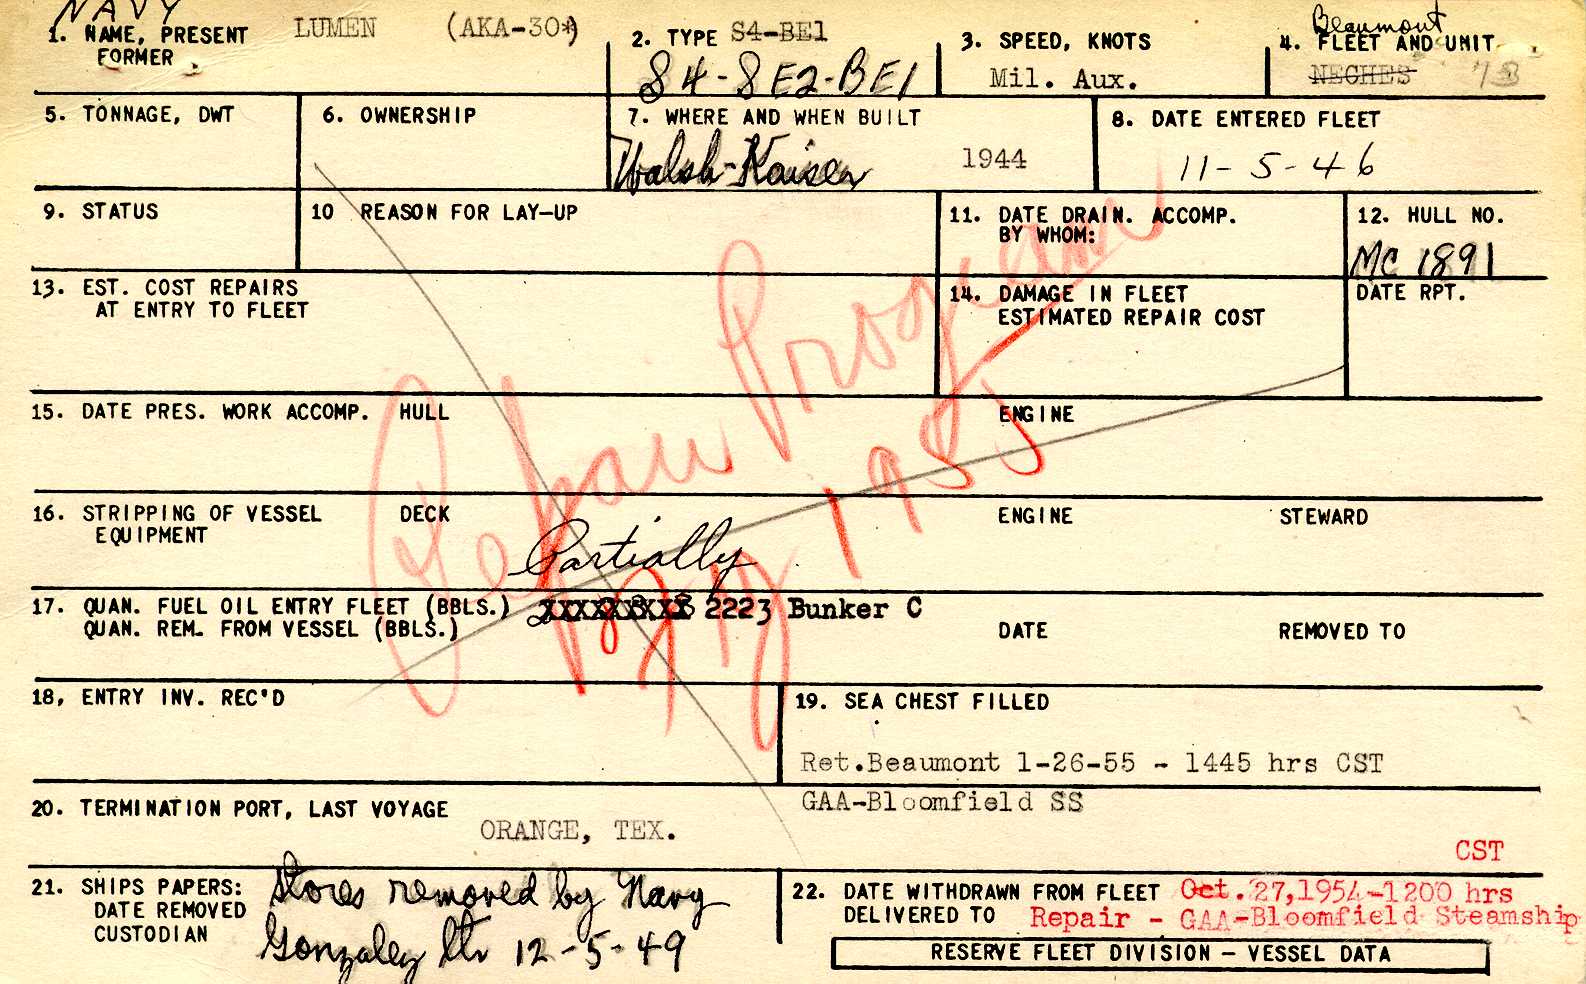 NAVY
1. NAME, PRESENT LUMEN (AKA-30*)
FORMER
2. TYPE S4-BE1
S4-SE2-BE1
3. SPEED, KNOTS
Mil. Aux.
Beaumont
4. FLEET AND UNIT
NECHES 73
5. TONNAGE, DWT
6. OWNERSHIP
7. WHERE AND WHEN BUILT
Walsh-Kaiser 1944
8. DATE ENTERED FLEET
11-5-46
9. STATUS
10 REASON FOR LAY-UP
11. DATE DRAIN. ACCOMP.
BY WHOM:
12. HULL NO.
MC 1891
13. EST. COST REPAIRS
AT ENTRY TO FLEET
14. DAMAGE IN FLEET
ESTIMATED REPAIR COST
DATE RPT.
Repair Program
FY 1955
15. DATE PRES. WORK ACCOMP. HULL ENGINE
16. STRIPPING OF VESSEL DECK ENGINE STEWARD
EQUIPMENT
Partially
17. QUAN. FUEL OIL ENTRY FLEET (BBLS.) 2223 Bunker C
QUAN. REM. FROM VESSEL (BBLS.) DATE REMOVED TO
18, ENTRY INV. REC'D
19. SEA CHEST FILLED
Ret.Beaumont 1-26-55 - 1445 hrs CST
GAA-Bloomfield SS
20. TERMINATION PORT, LAST VOYAGE
ORANGE, TEX.
CST
21. SHIPS PAPERS:
DATE REMOVED
CUSTODIAN
Stores removed by Navy
Gonzaley ltr 12-5-49
22. DATE WITHDRAWN FROM FLEET Oct.27,1954-1200 hrs
DELIVERED TO Repair - GAA-Bloomfield Steamship
RESERVE FLEET DIVISION - VESSEL DATA